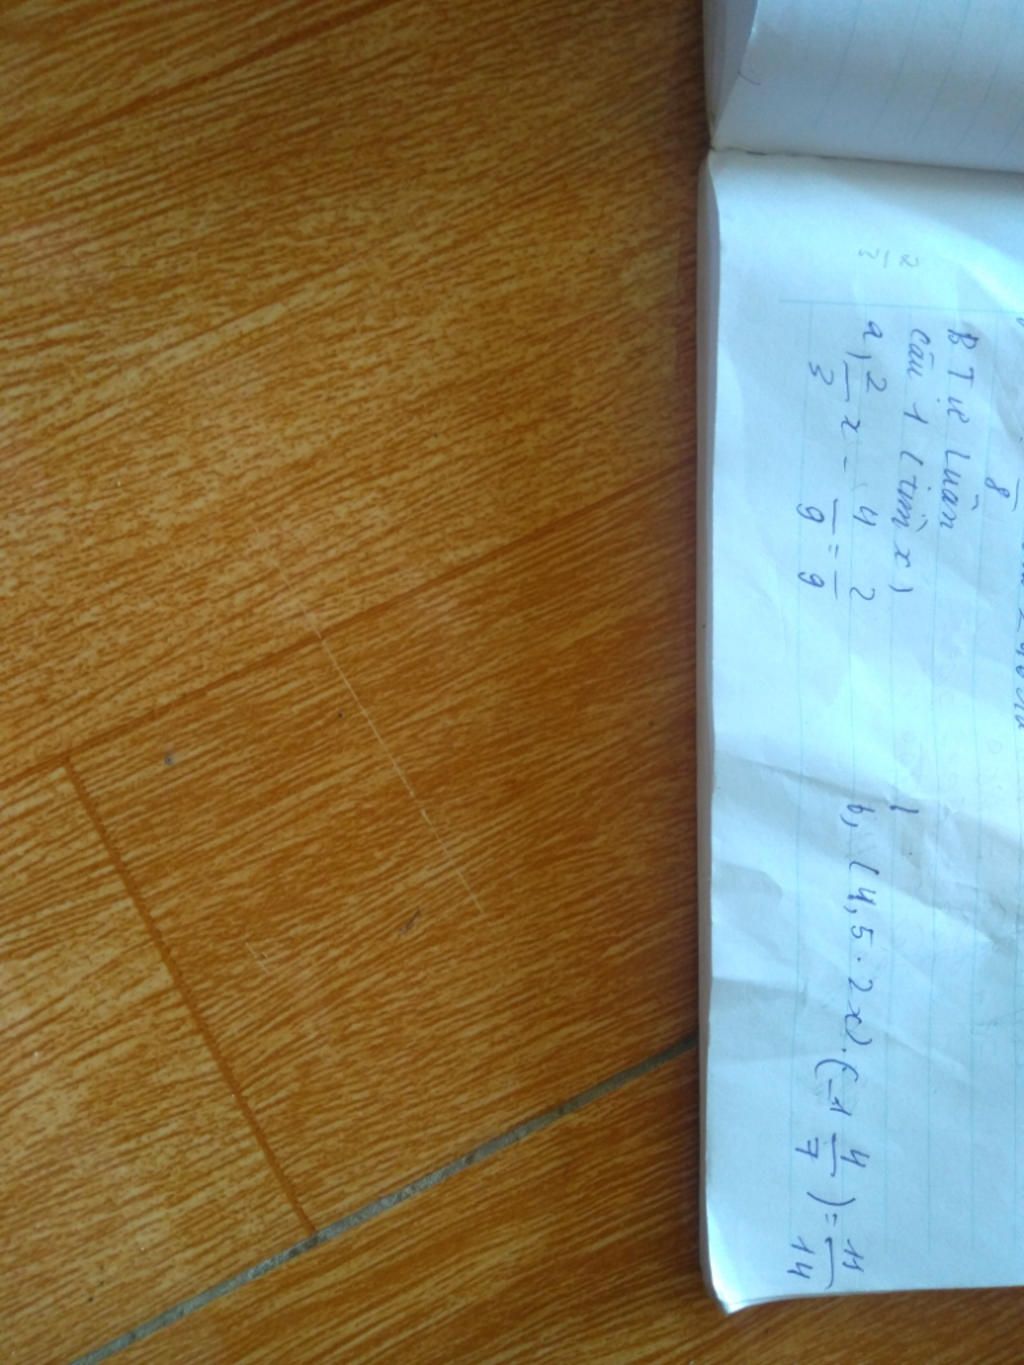 B Tự Luận
Câu 1 (tìm x)
a, 2/3 x - 4/9 = 2/9
b, (4,5 . 2x) . (-1 4/7) = 11/14